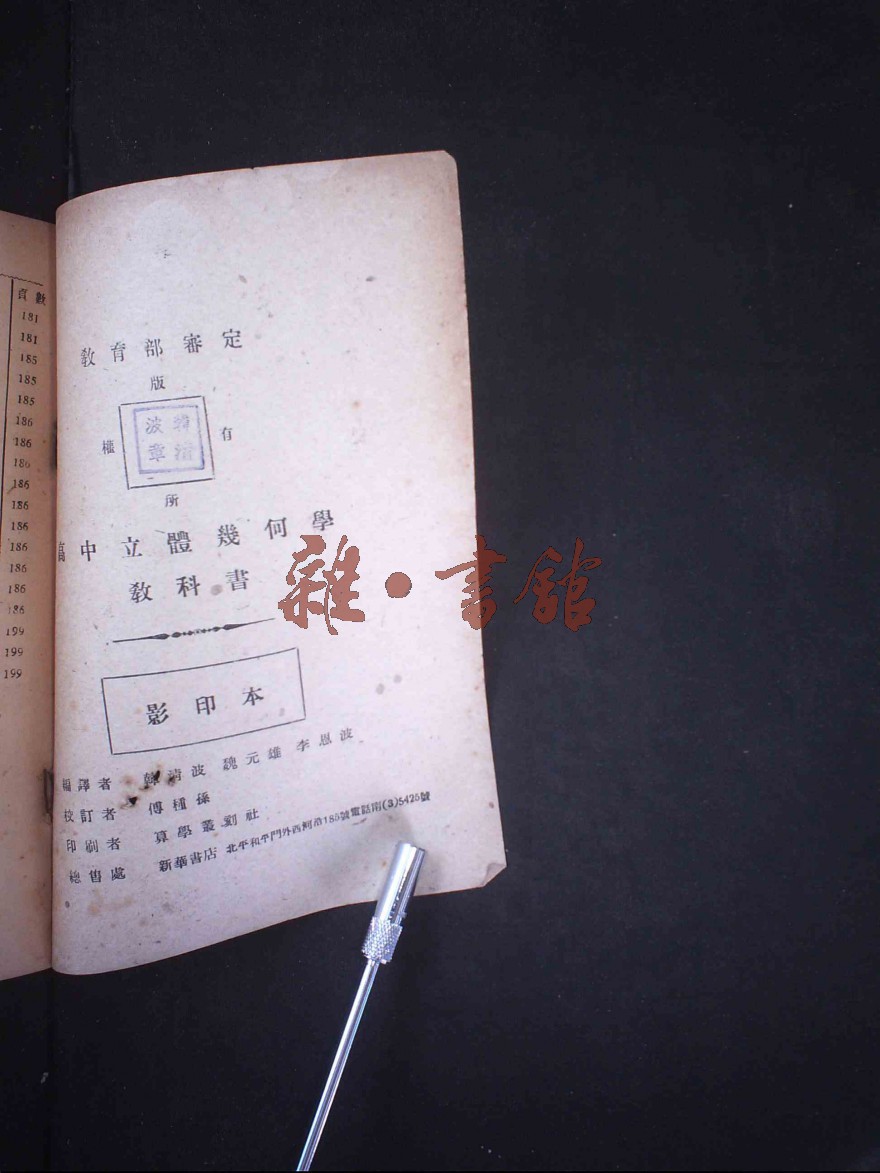 頁數
181
181
185
185
185
186
186
186
186
186
186
186
186
186
186
199
199
199
教育部審定
版
權 有
波 韓
章 清
所
高中立體幾何學
教科書
影印本
編譯者 韓清波 魏元雄 李恩波
校訂者 傅種孫
印刷者 算學叢刻社
總售處 新華書店 北平和平門外西河沿185號電話南(3)5425號
雜·書館